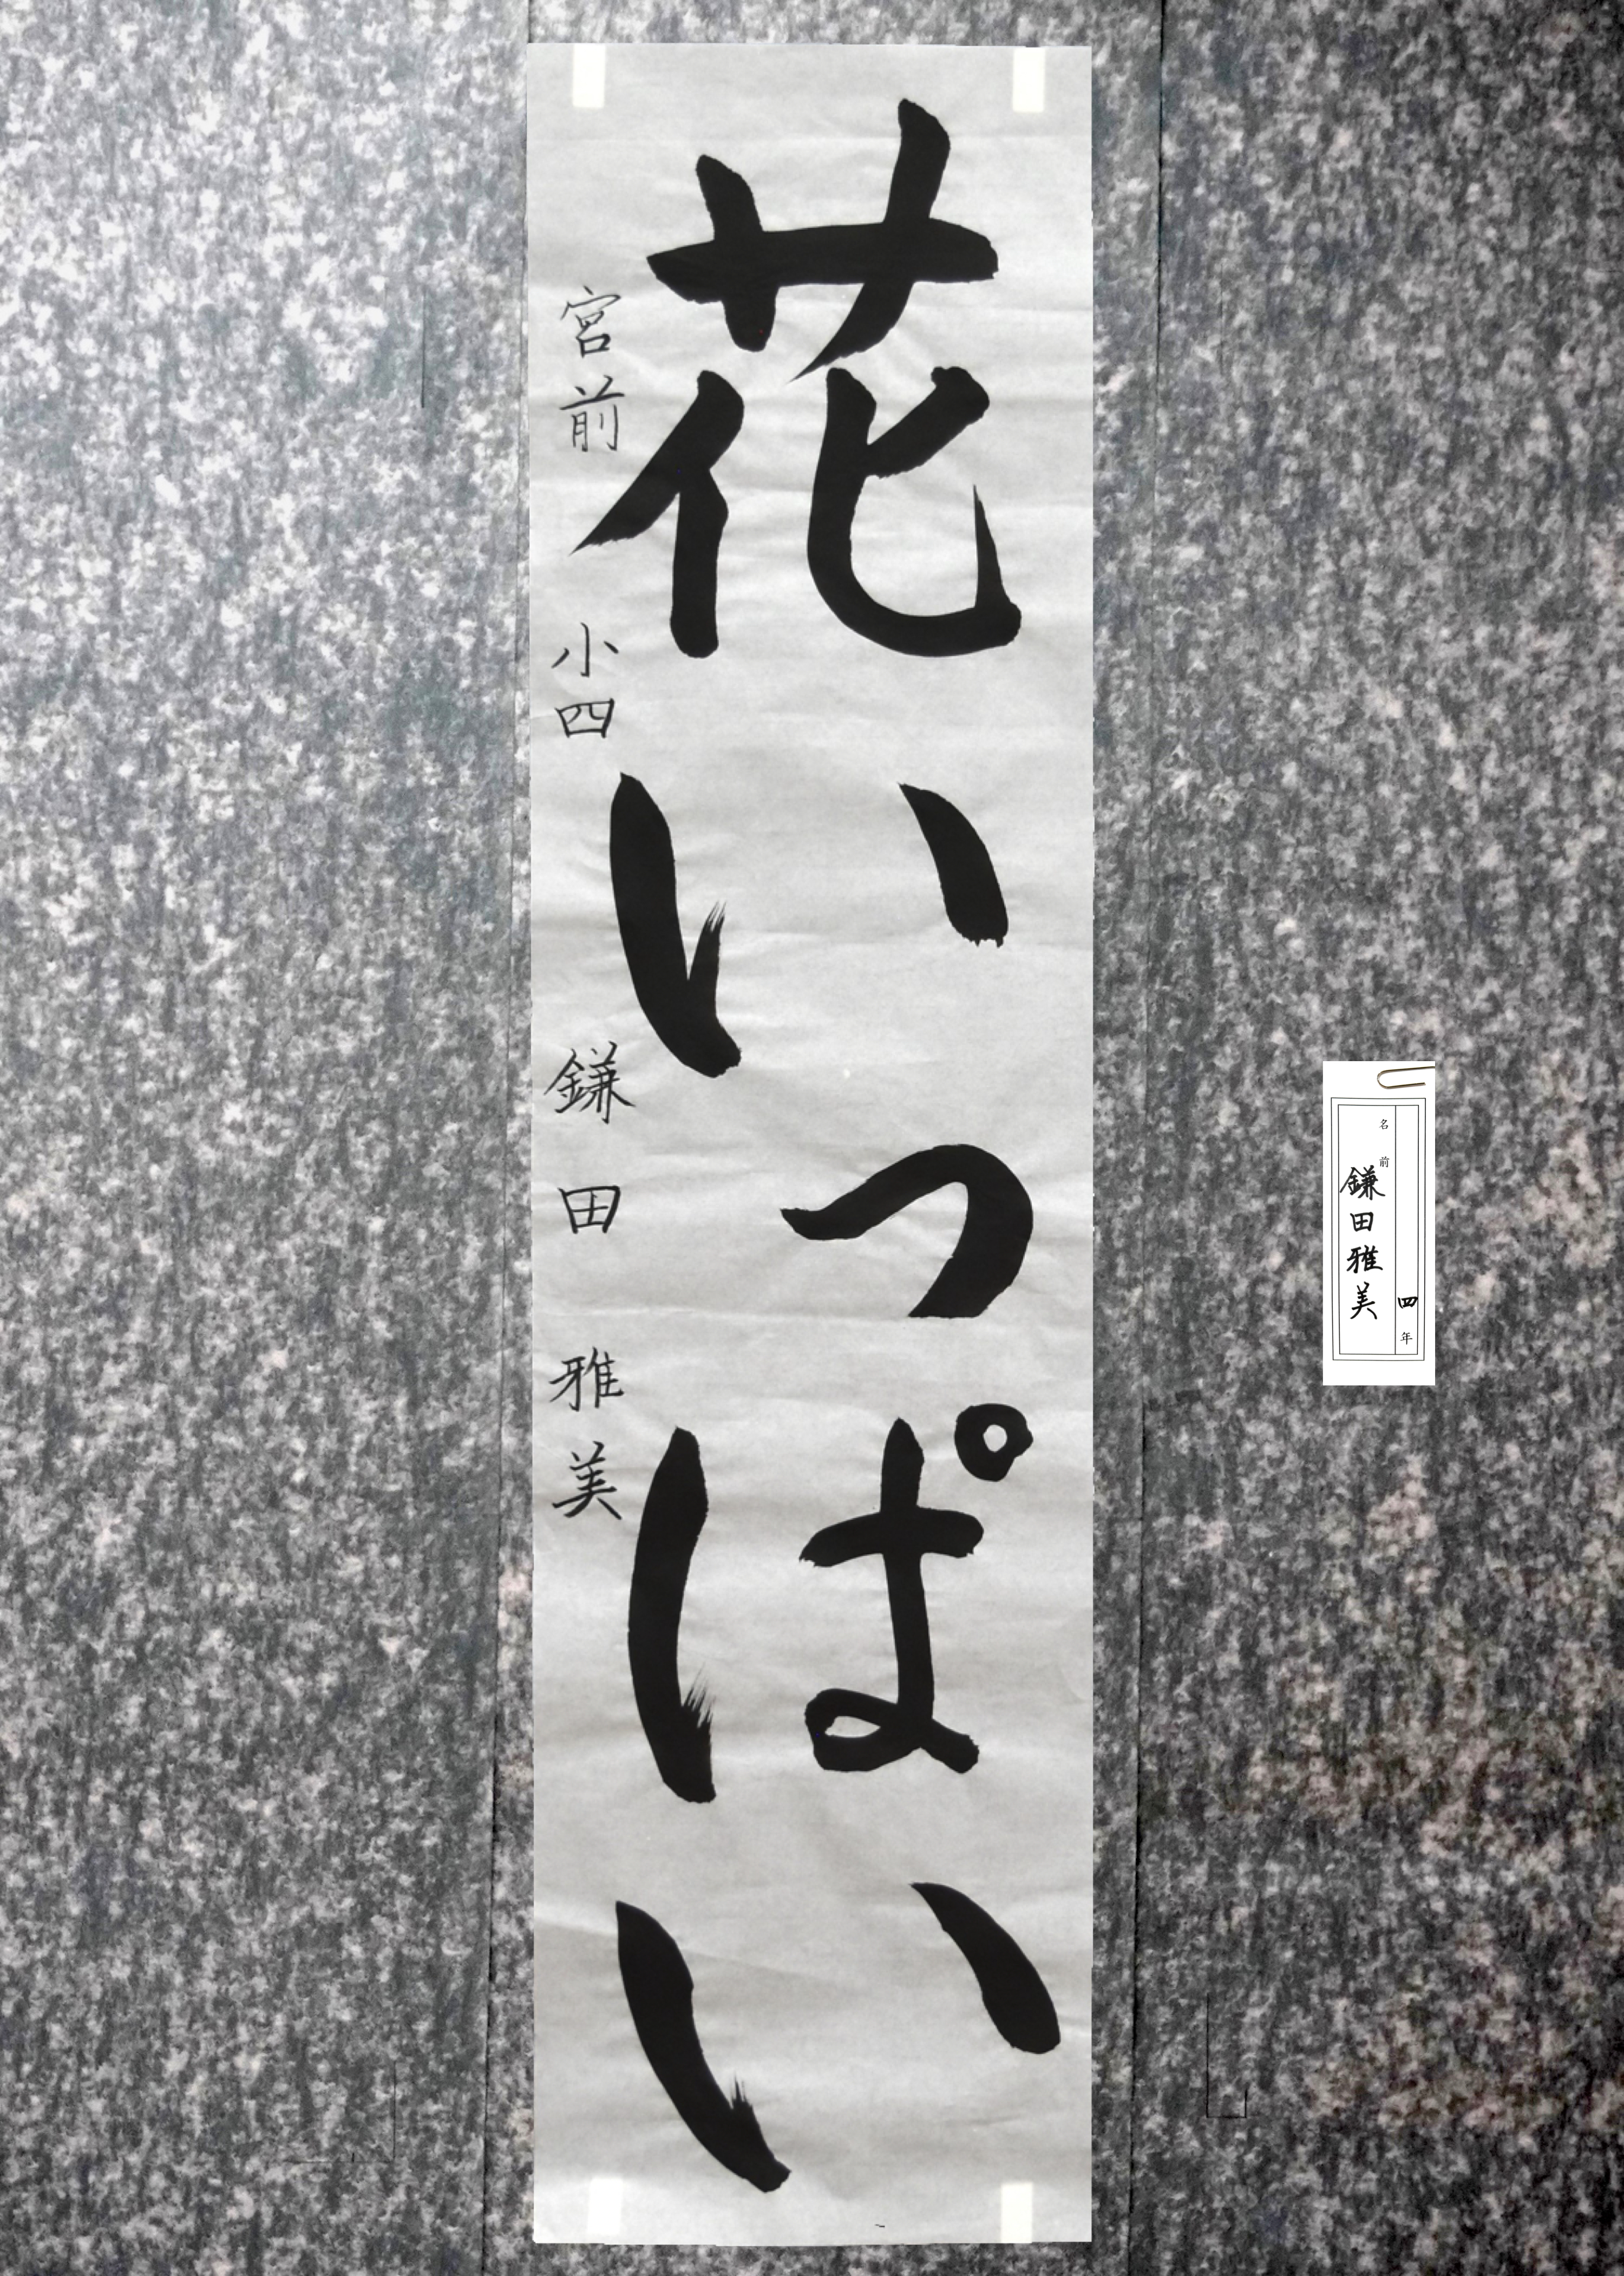 花いっぱい
宮前 小四 鎌田雅美
四年
名前
鎌田雅美